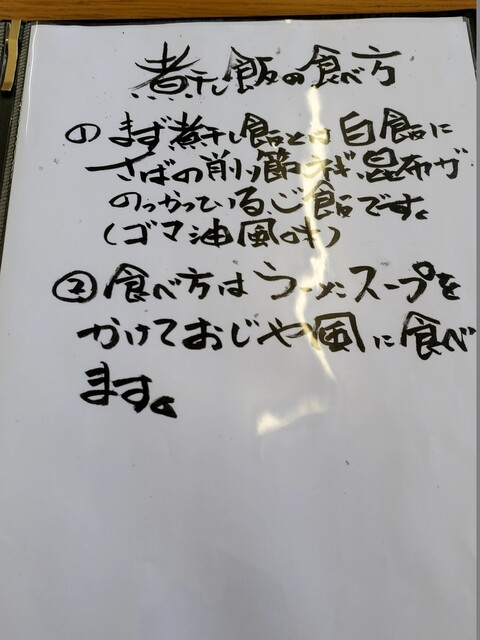 煮干し飯の食べ方
① まず煮干し飯とは白飯に
さばの削り節、ネギ、昆布が
のっかっている、ご飯です。
(ゴマ油風味)
② 食べ方はラーメンスープを
かけておじや風に食べ
ます。